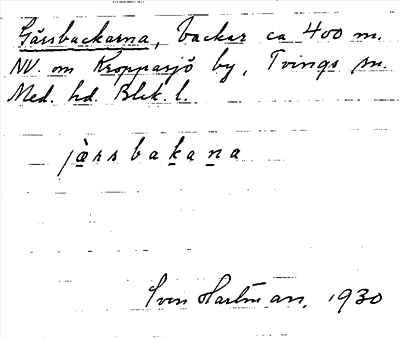 Gässbackarna, backar ca 400 m.
NV. om Kropparsjö by, Tvings sn.
Med. hd. Blek. l.
jàssbakana
Sven Hartman, 1930